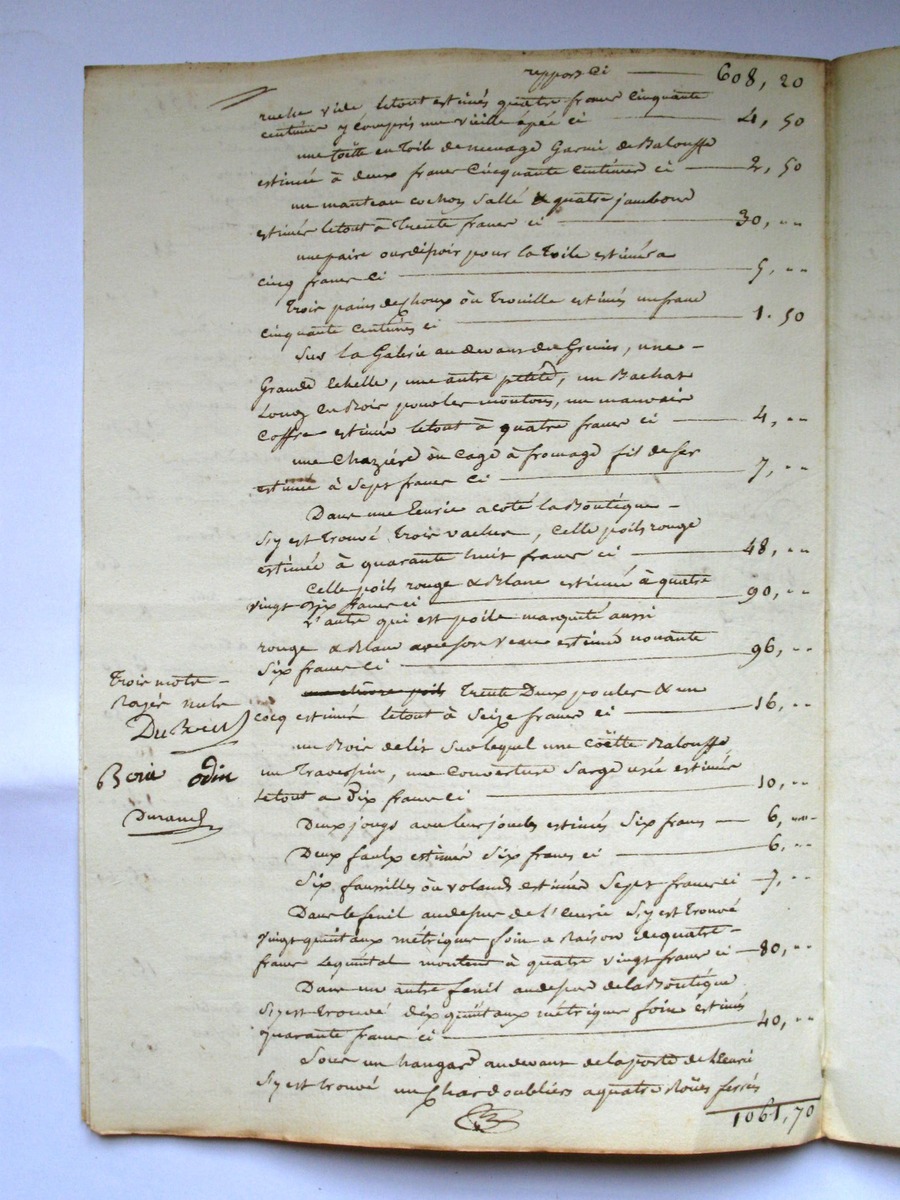 report ci — 608, 20
ruche vide letout estimés quatre francs cinquante
centimes y compris une vieille épée ci — 4, 50
une coëtte en Toile de menage Garnie de Balouffe
estimée à deux francs Cinquante Centimes ci — 2, 50
un manteau cochon Sallé & quatre jambons
estimés letout à Trente francs ci — 30, ..
une paire ourdissoir pour la Toile estimés a
cinq francs ci — 5, ..
Trois pains de choux ou Trouille estimés un franc
cinquante centimes ci — 1. 50
Sur la Galerie au devans du Grenier, une —
Grande Echelle, une autre petite, un Bachas
Long En Bois pour les moutons, un mauvais
coffre estimés letout à quatre francs ci — 4, ..
une Chazière ou cage à fromage fil de fer
estimée à Sept francs Ci — 7, ..
Dans une Ecurie a coté la Boutique —
S'y est Trouvé Trois vaches, Celle poils rouge
estimée à quarante huit francs ci — 48, ..
Celle poils rouge & Blanc estimée à quatre
vingt Dix francs ci — 90, ..
L'autre qui est poils marquété aussi
rouge & Blanc avec son veau estimés nonante
Six francs Ci — 96, ..
Trente Deux poules & un
cocq estimés letout à Seize francs ci — 16, ..
un Bois de lit Sur lequel une Coëtte Balouffe,
un Traversin, une Couverture Sarge usée estimés
letout a Dix francs Ci — 10, ..
Deux jougs avec leur joucles estimés Six francs — 6, ..
Deux faulx estimés Six francs ci — 6, ..
Six faussilles ou volands estimés Sept francs ci — 7, ..
Dans le fenil au dessus de l'Ecurie S'y est Trouvé
Vingt quintaux métriques foin a Raison de quatre —
francs Lequintal montent à quatre vingt francs ci — 80, ..
Dans un autre fenil au dessus de la Boutique
S'y est trouvé dix quintaux métriques foins estimés
quarante francs ci — 40, ..
Sous un hangar au devant de la porte de l'Ecurie
S'y est trouvé un Char doubliers a quatre Roües ferrés
1061, 70
Trois mots —
Rayés nuls
Borie odin
Durand